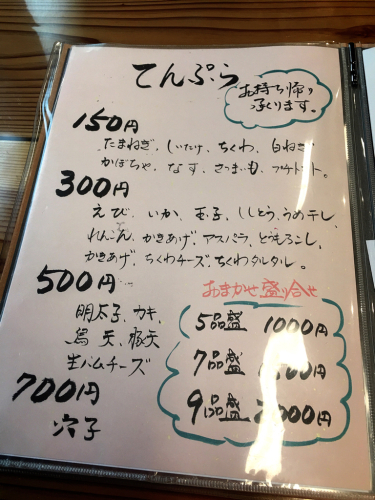 てんぷら
お持ち帰り
承ります。
150円
たまねぎ、しいたけ、ちくわ、白ねぎ
かぼちゃ、なす、さつまいも、プチトマト。
300円
えび、いか、玉子、ししとう、うめ干し、
れんこん、かきあげ、アスパラ、とうもろこし、
かきあげ、ちくわチーズ、ちくわタルタル。
500円
明太子、カキ、
鳥天、豚天
生ハムチーズ
700円
穴子
おまかせ盛り合せ
5品盛 1000円
7品盛
9品盛 2000円